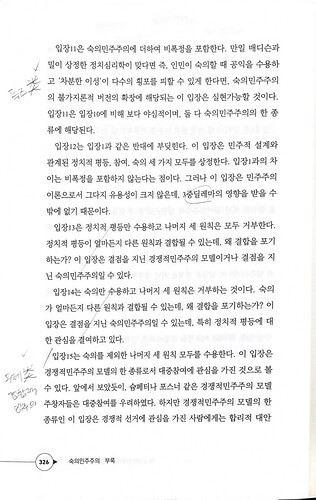 입장11은 숙의민주주의에 더하여 비폭정을 포함한다. 만일 매디슨과
밀이 상정한 정치심리학이 맞다면 즉, 인민이 숙의할 때 공익을 수용하
고 '차분한 이성'이 다수의 횡포를 피할 수 있게 한다면, 숙의민주주의
의 불가지론적 버전의 확장에 해당되는 이 입장은 실현가능할 것이다.
입장11은 입장10에 비해 보다 야심적이며, 둘 다 숙의민주주의의 한 종
류에 해당된다.
입장12는 입장1과 같은 반대에 부딪힌다. 이 입장은 민주적 설계와
관계된 정치적 평등, 참여, 숙의 세 가지 모두를 상정한다. 입장1과의 차
이는 비폭정을 포함하지 않는다는 점이다. 그러나 이 입장은 민주주의
이론으로서 그다지 유용성이 크지 않은데, 3중딜레마의 영향을 받을 수
밖에 없기 때문이다.
입장13은 정치적 평등만 수용하고 나머지 세 원칙은 모두 거부한다.
정치적 평등이 얼마든지 다른 원칙과 결합될 수 있는데, 왜 결합을 포기
하는가? 이 입장은 결점을 지닌 경쟁적민주주의 모델이거나 결점을 지
닌 숙의민주주의일 수 있다.
입장14는 숙의만 수용하고 나머지 세 원칙은 거부하는 것이다. 숙의
가 얼마든지 다른 원칙과 결합될 수 있는데, 왜 결합을 포기하는가? 이
입장은 결점을 지닌 숙의민주주의일 수 있는데, 특히 정치적 평등에 대
한 관심을 결여하고 있다.
입장15는 숙의를 제외한 나머지 세 원칙 모두를 수용한다. 이 입장은
경쟁적민주주의 모델의 한 종류로서 대중참여에 관심을 가진 것으로 볼
수 있다. 앞에서 보았듯이, 슘페터나 포스너 같은 경쟁적민주주의 모델
주창자들은 대중참여를 우려하였다. 하지만 경쟁적민주주의 모델의 한
종류인 이 입장은 경쟁적 선거에 관심을 가진 사람에게는 합리적 대안
326 숙의민주주의 부록